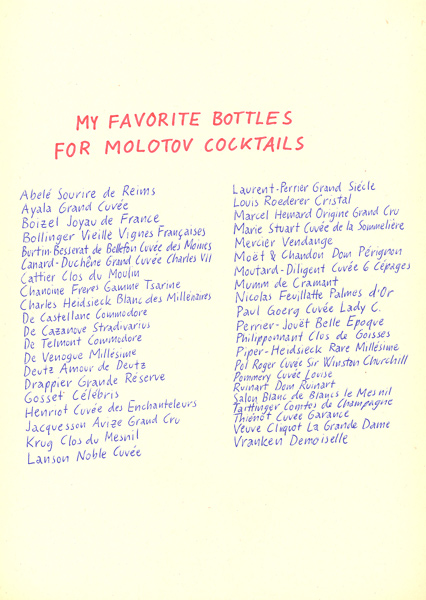 MY FAVORITE BOTTLES
FOR MOLOTOV COCKTAILS
Abelé Sourire de Reims
Ayala Grand Cuvée
Boizel Joyau de France
Bollinger Vieille Vignes Françaises
Burtin-Besserat de Bellefon Cuvée des Moines
Canard-Duchêne Grand Cuvée Charles VII
Cattier Clos du Moulin
Chanoine Freres Gamme Tsarine
Charles Heidsieck Blanc des Millénaires
De Castellane Commodore
De Cazanove Stradivarius
De Telmont Commodore
De Venogue Millésime
Deutz Amour de Deutz
Drappier Grande Réserve
Gosset Célébris
Henriot Cuvée des Enchanteleurs
Jacquesson Avize Grand Cru
Krug Clos du Mesnil
Lanson Noble Cuvée
Laurent-Perrier Grand Siècle
Louis Roederer Cristal
Marcel Hemard Origine Grand Cru
Marie Stuart Cuvée de la Sommelière
Mercier Vendange
Moët & Chandon Dom Pérignon
Moutard-Diligent Cuvée 6 Cépages
Mumm de Cramant
Nicolas Feuillatte Palmes d'Or
Paul Goerg Cuvée Lady C.
Perrier-Jouët Belle Epoque
Philipponnant Clos de Goisses
Piper-Heidsieck Rare Millésime
Pol Roger Cuvée Sir Winston Churchill
Pommery Cuvée Louise
Ruinart Dom Ruinart
Salon Blanc de Blancs le Mesnil
Taittinger Comtes de Champagne
Thiénot Cuvée Garance
Veuve Cliquot La Grande Dame
Vranken Demoiselle